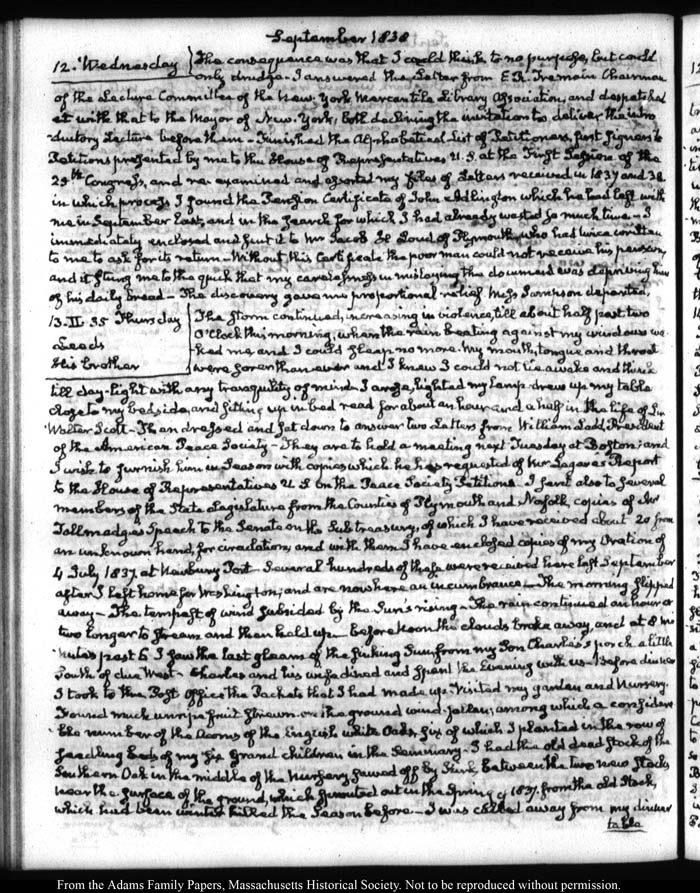 September 1838
12. Wednesday
The consequence was that I could think to no purpose, but could
only drudge. I answered the Letter from E. R. Tremain Chairman
of the Lecture Committee of the New-York Mercantile Library Association, and despatched
it with that to the Mayor of New-York, both declining the invitation to deliver the intro
ductory Lecture before them. Finished the Alphabetical List of Petitioners, first signers to
Petitions presented by me to the House of Representatives U.S. at the First Session of the
25th Congress, and re-examined and assorted my files of Letters received in 1837 and 38
in which process I found the Pension Certificate of John Adlington which he had left with
me in September last, and in the search for which I had already wasted so much time. I
immediately enclosed and sent it to Mr Jacob H Loud of Plymouth, who had twice written
to me to ask for its return. Without this Certificate the poor man could not receive his pension,
and it stung me to the quick that my carelessness in mislaying the document was depriving him
of his daily bread. The discovery gave me proportional relief. Miss Sampson departed.
13. II. 35 Thursday
Leeds
His brother
The storm continued, increasing in violence, till about half past two
O'Clock this morning, when the rain beating against my windows wa
ked me and I could sleep no more. My mouth, tongue and throat
were sorer than ever and I knew I could not lie awake and think
till day-light with any tranquility of mind. I arose, lighted my lamp drew up my table
close to my bedside, and sitting up in bed read for about an hour and a half in the life of Sir
Walter Scott. Then dressed and sat down to answer two Letters from William Ladd, President
of the American Peace Society. They are to hold a meeting next Tuesday at Boston; and
I wish to furnish him in Season with copies which he has requested of Mr Legare's Report
to the House of Representatives U S on the Peace Society Petitions. I sent also to several
members of the State Legislature from the Counties of Plymouth and Norfolk, copies of Mr
Tallmadge's Speech to the Senate on the Subtreasury, of which I have received about 20 from
an unknown hand, for circulation, and with them I have enclosed copies of my Oration of
4 July 1837. at Newbury Port. Several hundreds of these were received here last September
after I left home for Washington, and are now here an incumbrance. The morning slipped
away. The tempest of wind subsided by the Sun's rising. The rain continued an hour or
two longer to stream and then held up. Before Noon the clouds broke away, and at 8 mi
nutes past 6 I saw the last gleam of the sinking Sun from my Son Charles's porch a little
South of due West. Charles and his wife dined and spent the Evening with us. Before dinner
I took to the Post Office the Packets that I had made up. Visited my garden and Nursery.
Found much unripe fruit strewn on the ground wind-fallen; among which a considera
ble number of the Acorns of the English white Oak, six of which I planted in the row of
seedling beds of my six grand children in the Seminary. I had the old dead stock of the
Southern Oak in the middle of the Nursery sawed off by Kirk between the two new stocks
near the surface of the ground, which sprouted out in the Spring of 1837. from the old Stock,
which had been winter killed the Season before. I was called away from my dinner
table
From the Adams Family Papers, Massachusetts Historical Society. Not to be reproduced without permission.